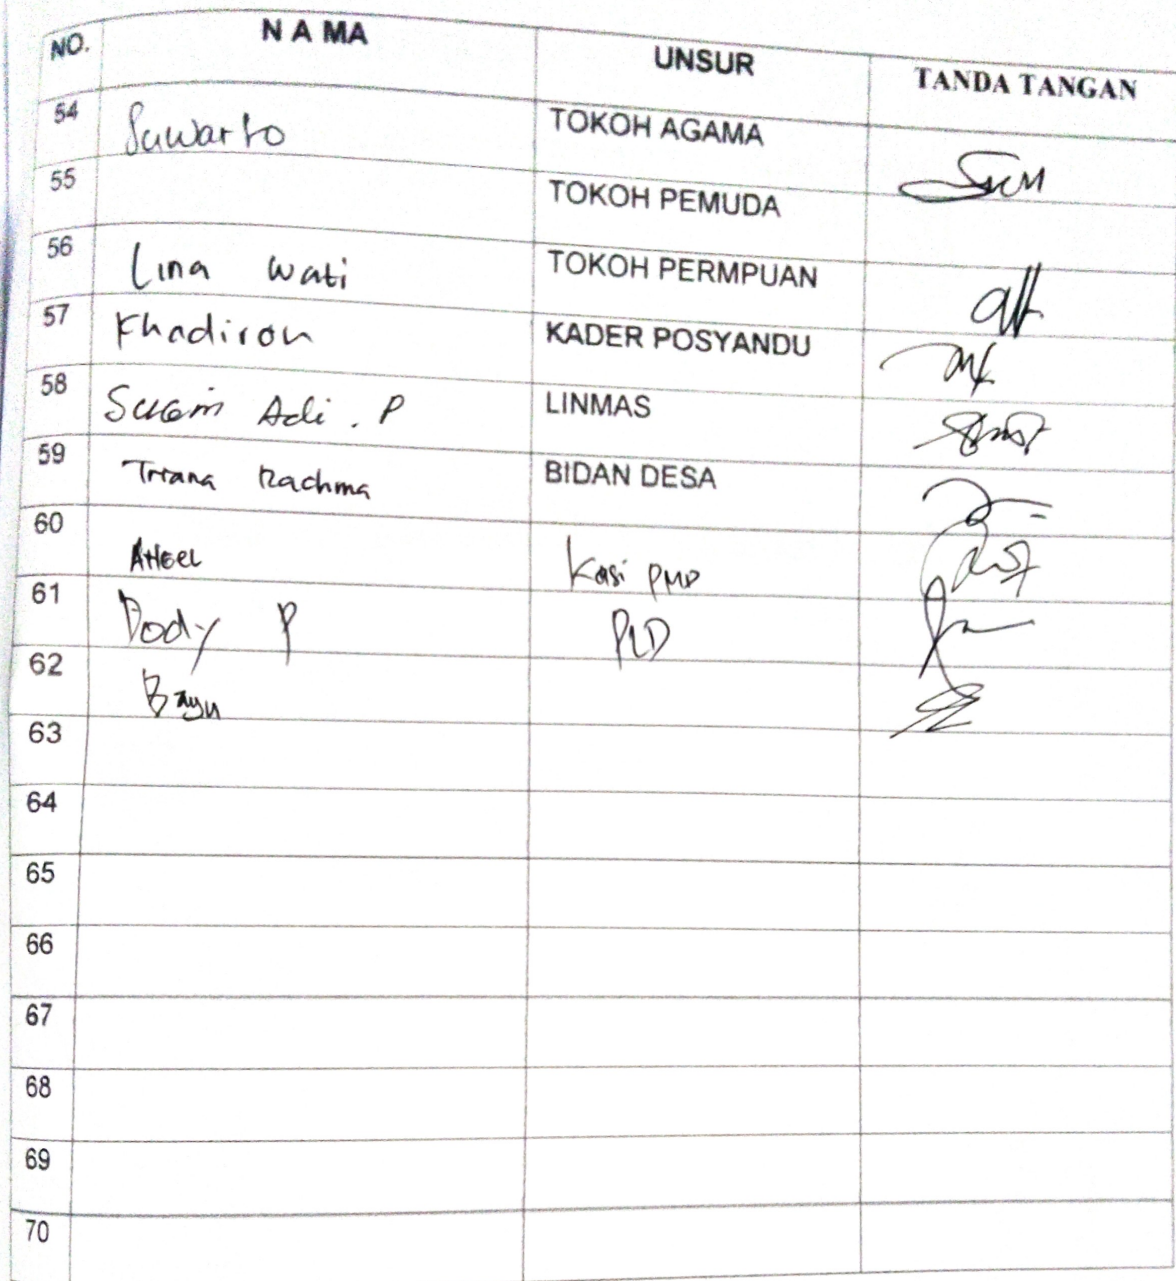 NO. N A M A UNSUR TANDA TANGAN
54 Suwarto TOKOH AGAMA
55 TOKOH PEMUDA
56 Lina Wati TOKOH PERMPUAN
57 Khadiron KADER POSYANDU
58 Adi . P LINMAS
59 Triana Rachma BIDAN DESA
60 Kasi PMD
61 Dody P PLD
62 Bayu
63
64
65
66
67
68
69
70